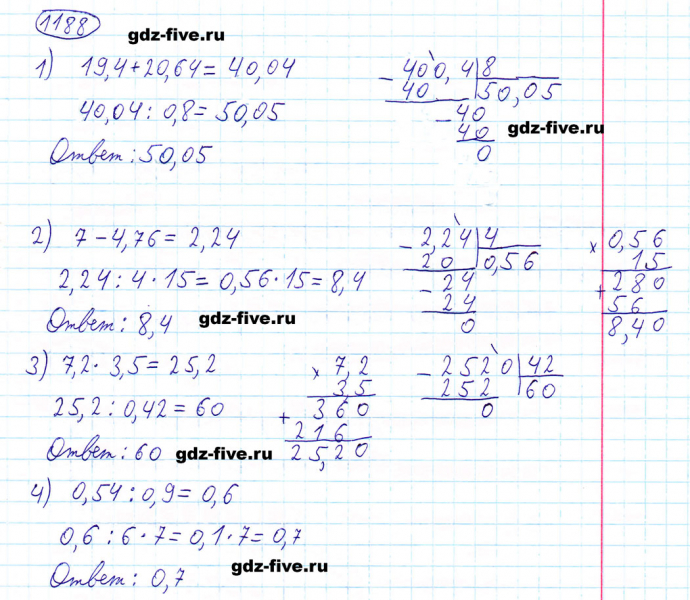 1188
gdz-five.ru
1) 19,4+20,64= 40,04
40,04 : 0,8= 50,05
Ответ: 50,05
- 400,4 8
40 50,05
- 40
40
0
gdz-five.ru
2) 7-4,76= 2,24
2,24 : 4 · 15= 0,56·15= 8,4
Ответ: 8,4
gdz-five.ru
- 2,24 4
20 0,56
- 24
24
0
× 0,56
15
+ 280
56
8,40
3) 7,2· 3,5= 25,2
25,2 : 0,42 = 60
Ответ: 60
gdz-five.ru
× 7,2
3,5
+ 360
216
25,20
- 2520 42
252 60
0
4) 0,54 : 0,9= 0,6
0,6 : 6·7= 0,1·7= 0,7
Ответ: 0,7
gdz-five.ru